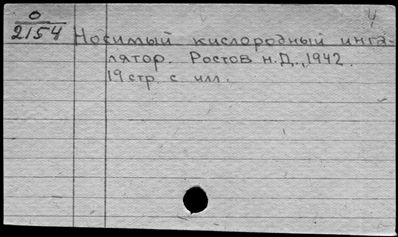 О
2154
Носимый кислородный инга-
лятор. Ростов н.Д., 1942.
19 стр. с илл.